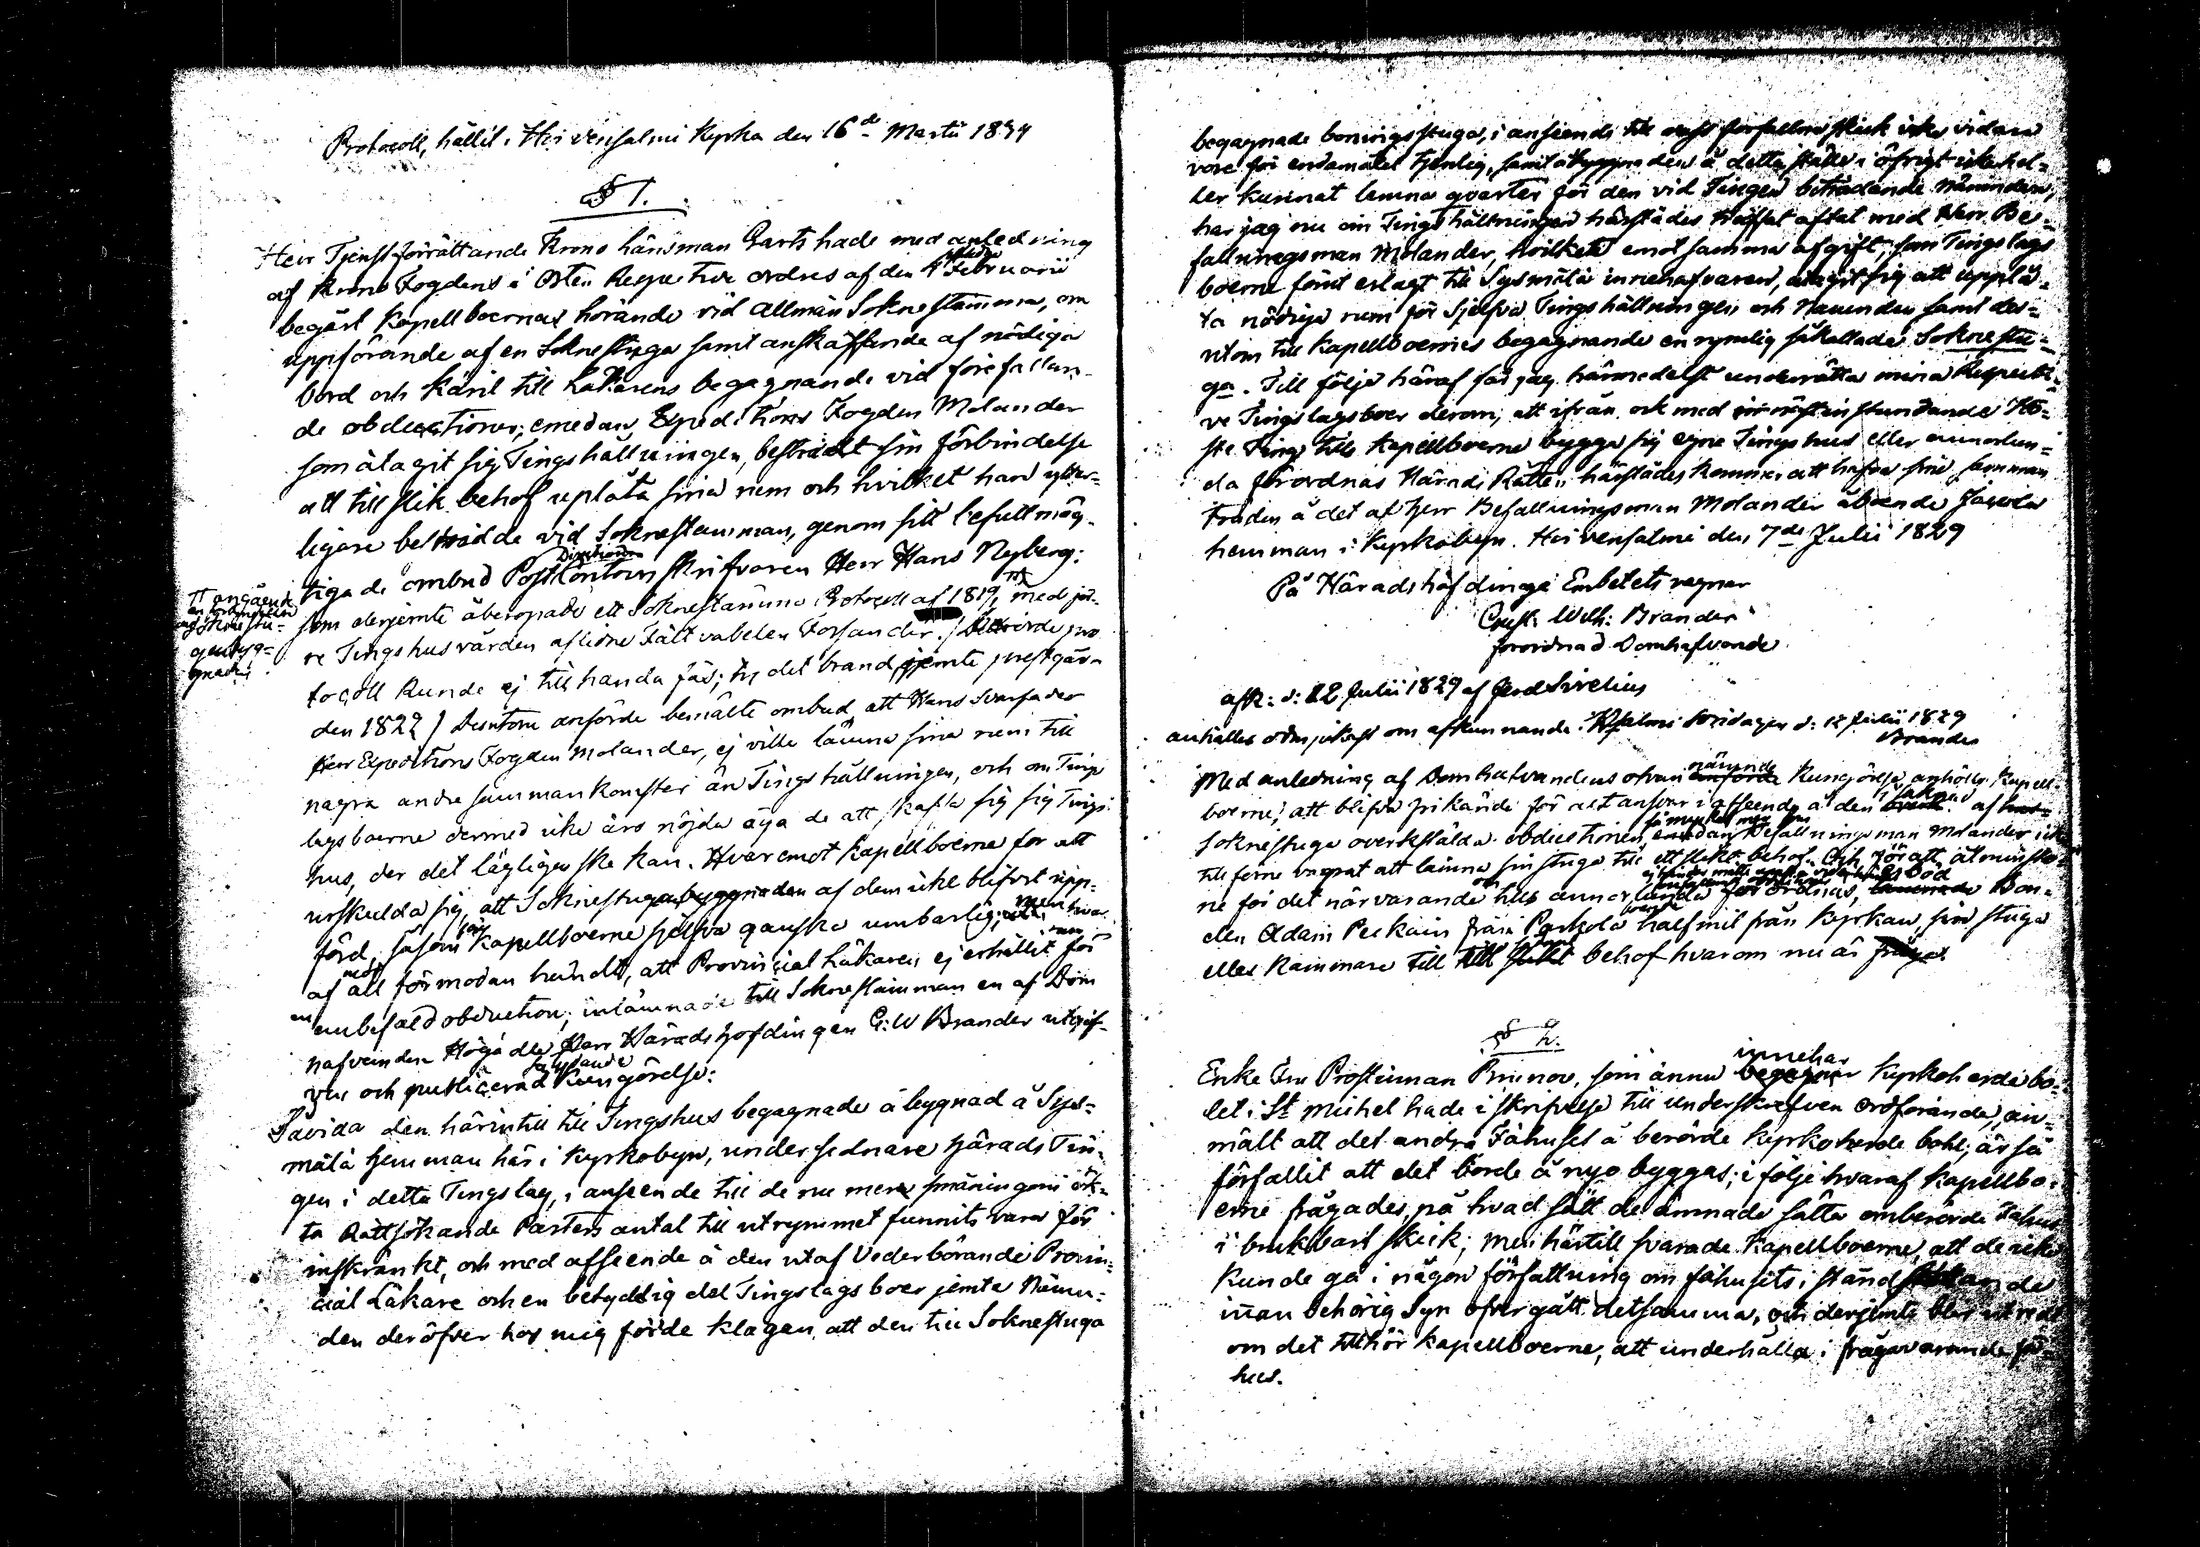 Protocoll, hållit i Hirvensalmi Kyrka den 16de Martii 1834
§ 1.
Herr Tjenstförrättande Krono Länsman Garts hade med anledning
af Krono Fogdens i Orten Respective ordres af den 4 sistl. Februarii
begärt Kapellboernas hörande vid allmän Soknestämma, om
uppförande af en Soknestuga samt anskaffande af nödiga
bord och käril till Läkarens begagnande vid förefallan-
de obductioner; emedan Expeditions Fogden Molander
som åtagit sig Tingshållningen, bestridt sin förbindelse
att till slik behof uplåta sina rum och hvilket han ytter=
ligare bestridde vid Soknestämman, genom sitt befullmäg-
tigade ombud Post Contors skrifvaren Herr Hans Nyberg:
som derjemte åberopade ett Soknestämmo Protocoll af 1819, π med för-
π angående
en förbindelse
af Soknestu-
gu byg=
gnad
re Tingshusvärden aflidne Fältvabelen Forsander. / Berörde pro
tocoll kunde ej till handa fås; ty det brand jemte prestgår-
den 1822 / Dessutom anförde bemälte ombud att Hans Svärfader
Herr Expeditions Fogden Molander, ej ville lämna sina rum till
några andra sammankomster än Tings hållningen, och om Tings
lagsboerne dermed icke äro nöjda äga de att skaffa sig Tings
hus, der det lägligen ske kan. Hvaremot Kapellboerne för att
urskulda sig, att Soknestugubyggnaden af dem icke blifvit upp=
förd, såsom för Kapellboerne sjelfva ganska umbarlig; men hvar
af mot all förmodan händt, att Provincial Läkaren ej erhållit rum för
en anbefald obduction; inlämnade till Soknestämman en af Dom
hafvanden Högädle Herr Häradshöfdingen G: W Brander utgif-
ven och publicerad följande Kungörelse:
Såvida den härintill till Tingshus begagnade åbyggnad å Sys=
mälä hemman här i Kyrkobyn, under sednare Härads Tin-
gen i detta Tingslag, i anseende till de nu mera småningom ök-
ta Rättsökande Parters antal till utrymmet funnits vara för
inskränkt, och med afseende å den utaf Vederbörande Provin=
cial Läkare och en betydlig del Tingslags boer jemte Nämn=
den deröfver hos mig förde klagan, att den till Soknestuga
begagnade boningsstuga, i anseende till dess förfallna skick icke vidare
vore för endamålet tjenlig, samt åbyggnaden å detta ställe i öfrigt icke hel=
ler kunnat lemna qvarter för den vid Tingen biträdande Nämnden,
har jag nu om Tingshållningen härstädes träffat aftal med Herr Be-
fallningsman Molander, hvilken emot samma afgift, som Tingslags
boerne förut erlagt till Sysmälä innehafvaren, åtagit sig att upplå-
ta nödige rum för Sjelfva Tingshållningen och Nämnden, samt des=
utom till Kapellboernes begagnande en rymlig såkallade Soknestu=
ga. Till följe häraf får jag härmedelst underrätta mina Respecti-
ve Tingslagsboer derom, att ifrån och med nästinstundande Hö=
ste Ting till Kapellboerne bygga sig egne Tingshus eller annorlun=
da förordnas Härads Rätten härstädes kommer att hafva sine samman
träden å det af Herr Befallningsman Molander åboende Javola
hemman i Kyrkobyn. Hirvensalmi den 7de Julii 1829
På Häradshöfdinge Embetets vägnar
Gust: Wilh: Brander
förordnad Domhafvande
afk: d: 12 Julii 1829 af Jerd Sirelius
anhålles ödmjukast om afkunnande i Hfsalmi Söndagen d: 12 Julii 1829
Brander
Med anledning af Domhafvandens ofvan nämnde Kungörelse anhölle Kapell-
boerne, att blifva frikände för alt ansvar i afseende å den i saknad af
soknestuga overkstälda obductionen, så mycket mer som Befallningsman Molander icke
till förne vägrat att lämna sin stuga till ett slikt behof. Och för att åtminsto-
ne för det närvarande till annorlunda förordnas, Bon-
den Adam Peckain från Pyrhölä halfmil från Kyrkan, sin stuga
eller Kammare till behof hvarom nu är fråga.
§ 2.
Enke Fru Prostinnan Brunou, som ännu innehar Kyrkoherdebo-
let i St Michel hade i skrifvelse till underskrefven ordförande, an-
mält att det andra Fähuset å berörde Kyrkoherde bohl; är så
förfallit att det borde å nyo byggas; i följe hvaraf Kapellbo-
erne frågades, på hvad sätt de ämnade sätta omberörde Fähus
i brukbart skick; men härtill svarade Kapellboerne, att de icke
kunde gå i någon författning om fähusets i stånd sättande
innan behörig Syn öfvergått detsamma, och derjemte blir utredt
om det tillhör Kapellboerne, att underhålla i frågavarande fä-
hus.